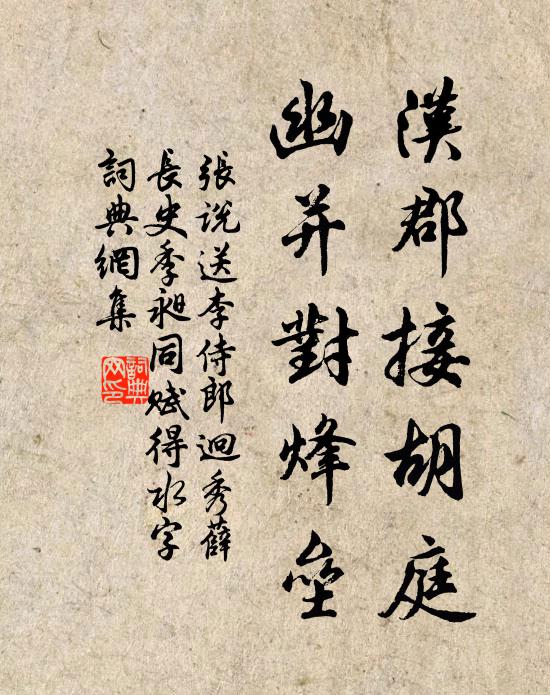 漢郡接胡庭
幽并對烽壘
張說送李侍郎迥秀薛
長史季昶同賦得水字
詞典網集
詞典
网印